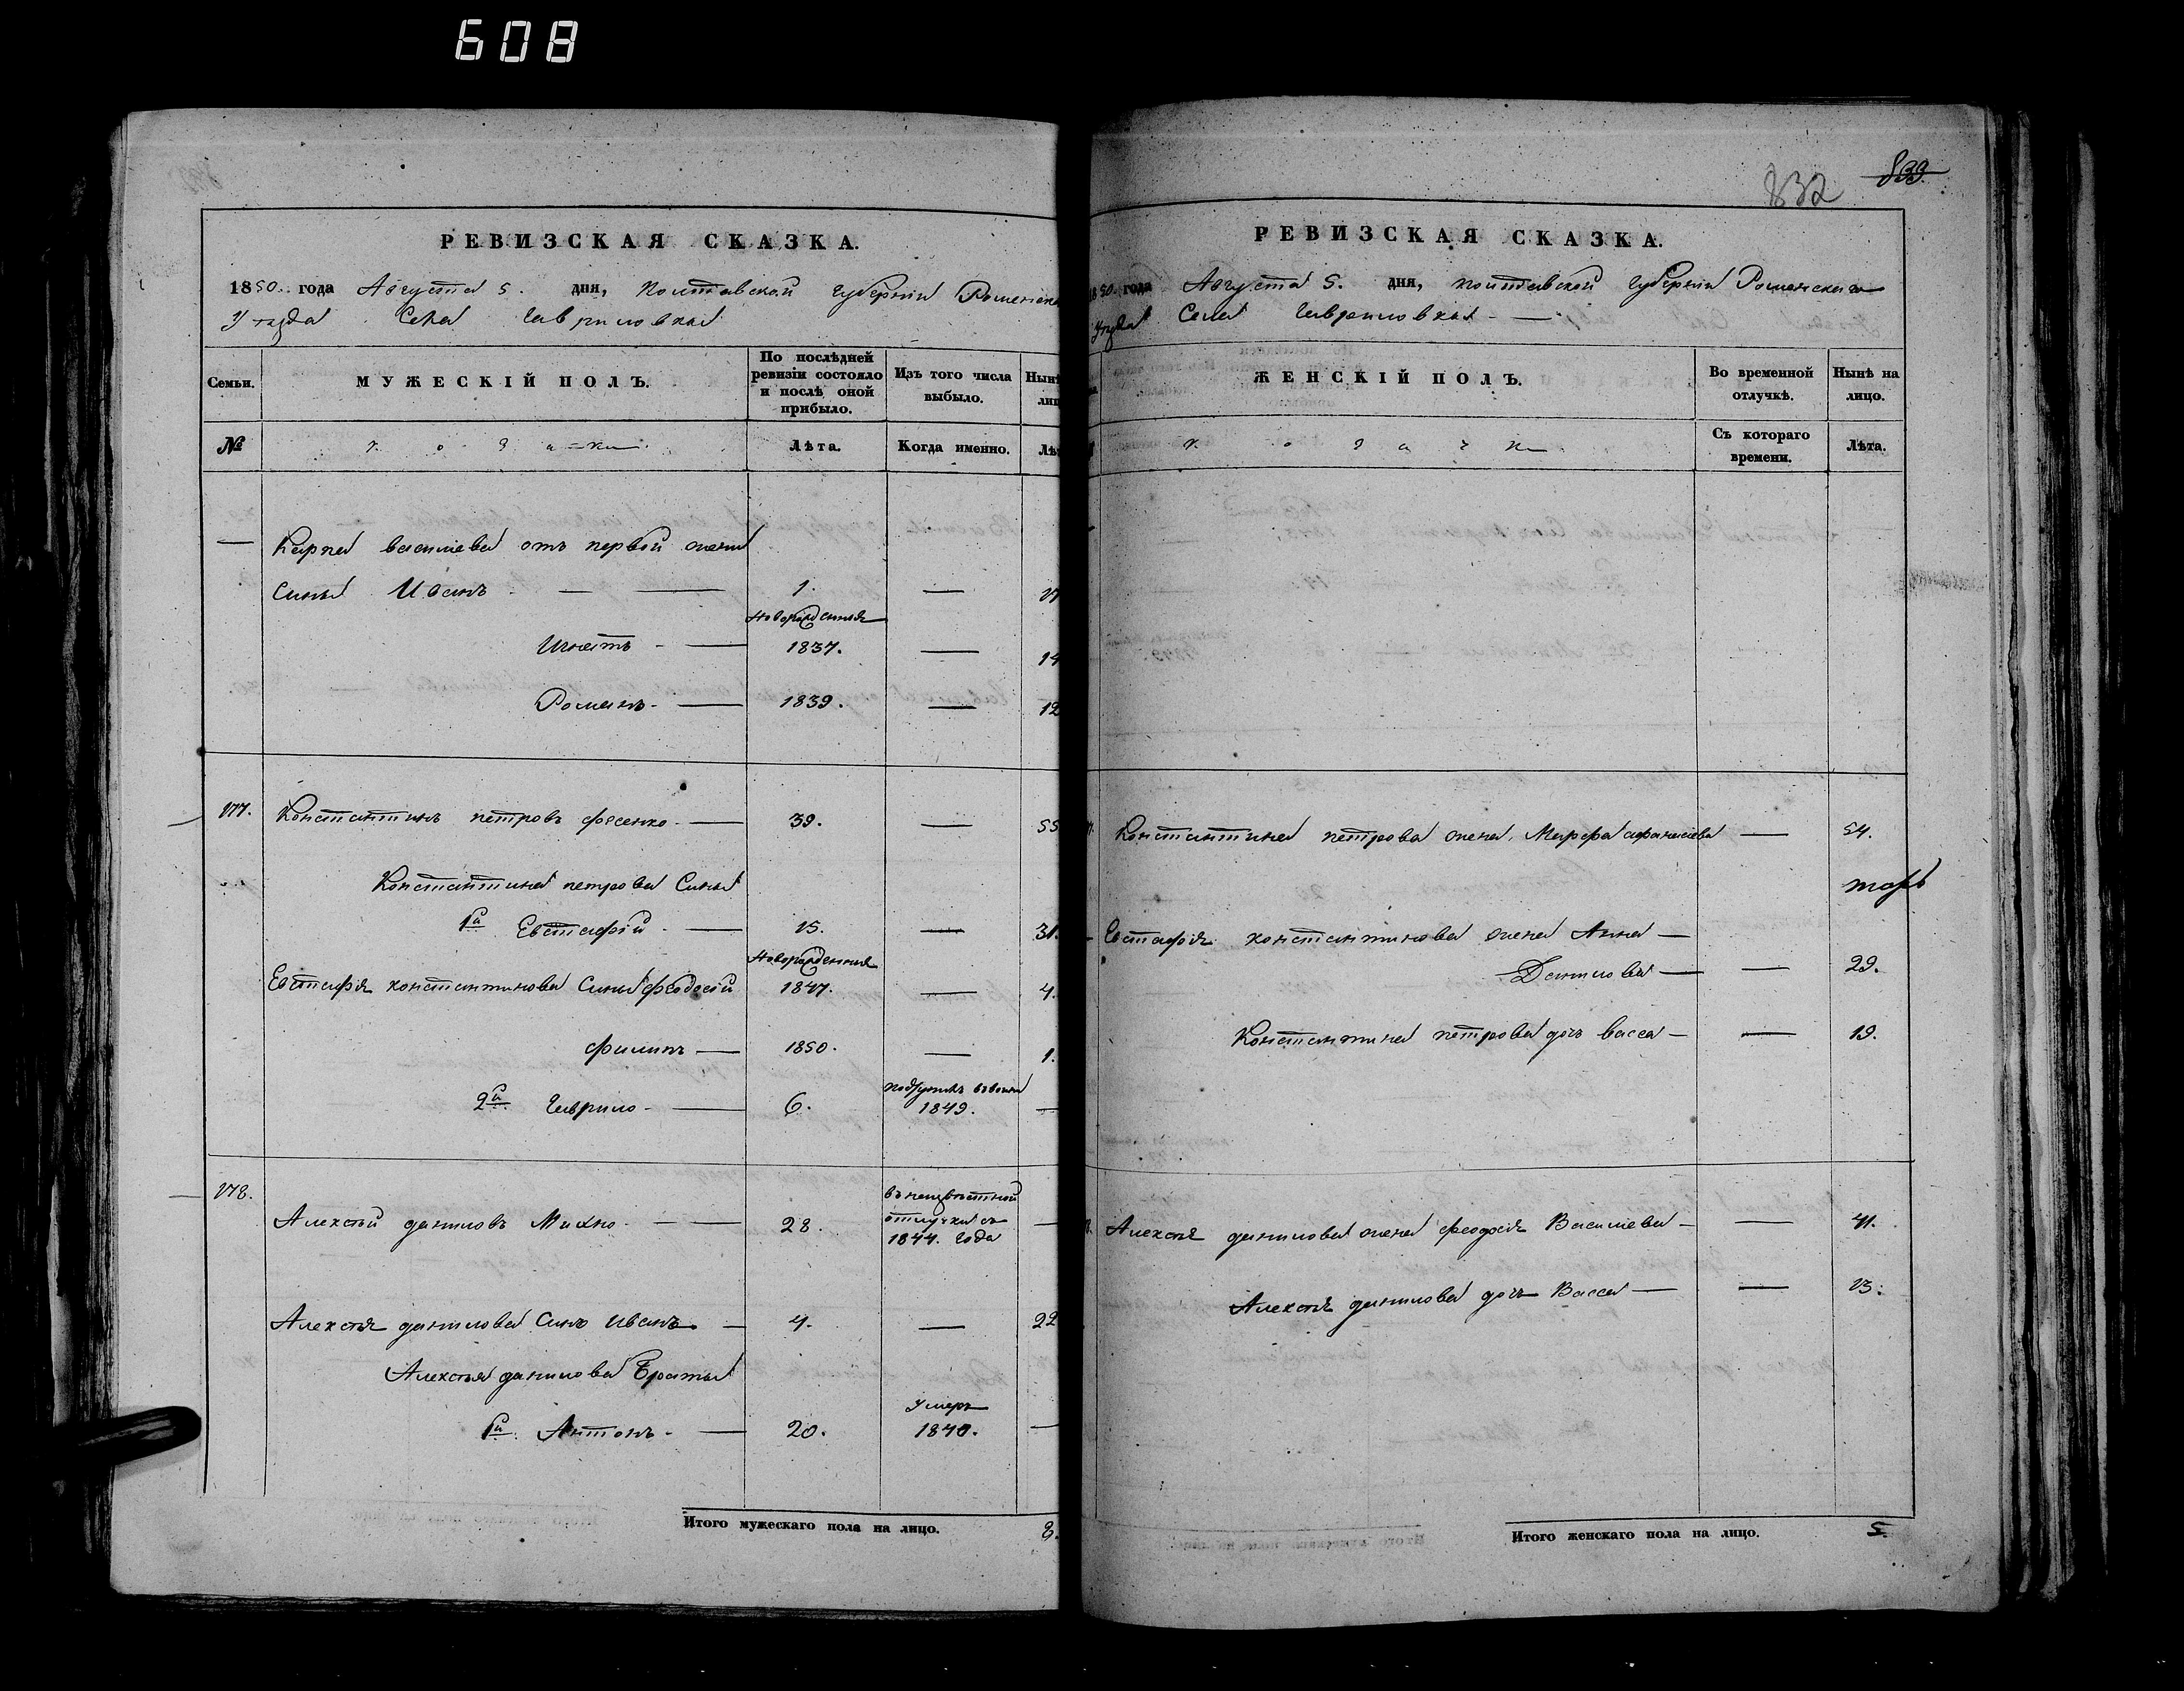 608
832 833
РЕВИЗСКАЯ СКАЗКА.
1850. года Августа 5. дня, Полтавской губерніи Роменска
Уѣзда Села Гавриловки
Семьи. МУЖЕСКІЙ ПОЛЪ. По послѣдней ревизіи состояло и послѣ оной прибыло. Изъ того числа выбыло. Нынѣ лиц
№ козаки Лѣта. Когда именно. Лѣт
Карпа Васильева отъ первой жены
Сины Иванъ 1. — 17
новорожденныя
Игнатъ 1837. — 14
Романъ 1839. — 12
177. Константинъ петровъ Фесенко 39. — 55
Константина петрова Сины
1й Евстафій 15. — 31.
новорожденныя
Евстафія константинова Сины Феодосій 1847. — 4.
Филипъ 1850. — 1.
2й Гаврило 6. 1849. —
178. Алексѣй даниловъ Михно 28. въ неизвѣстной отлучки съ 1844. года —
Алексѣя данилова Синъ Иванъ 4. — 22
Алексѣя данилова Браты
1й Антонъ 20. Умеръ 1840. —
Итого мужескаго пола на лицо. 8.
РЕВИЗСКАЯ СКАЗКА.
1850 года Августа 5. дня, Полтавской губерніи Роменскаго
Уѣзда Села Гавриловки
ЖЕНСКІЙ ПОЛЪ. Во временной отлучкѣ. Нынѣ на лицо.
козачки Съ котораго времени. Лѣта.
Константина петрова жена Марфа афанасіева — 54.
Евстафія константинова жена Анна
Данилова — 29.
Константина петрова дочь васса — 19.
Алексѣя данилова жена феодосія Василіева — 41.
Алексѣя данилова дочь Васса — 13.
Итого женскаго пола на лицо. 5.